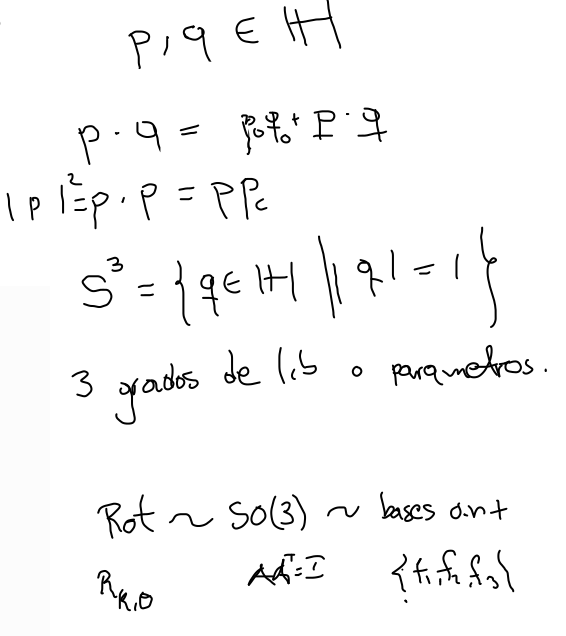 p, q ∈ ℍ
p · q = p₀q₀ + p · q
|p|² = p · p = p p_c
S³ = { q ∈ ℍ | |q| = 1 }
3 grados de lib o parametros.
Rot ~ SO(3) ~ bases o.n +
R_{k,θ} AA^T = I {f₁, f₂, f₃}